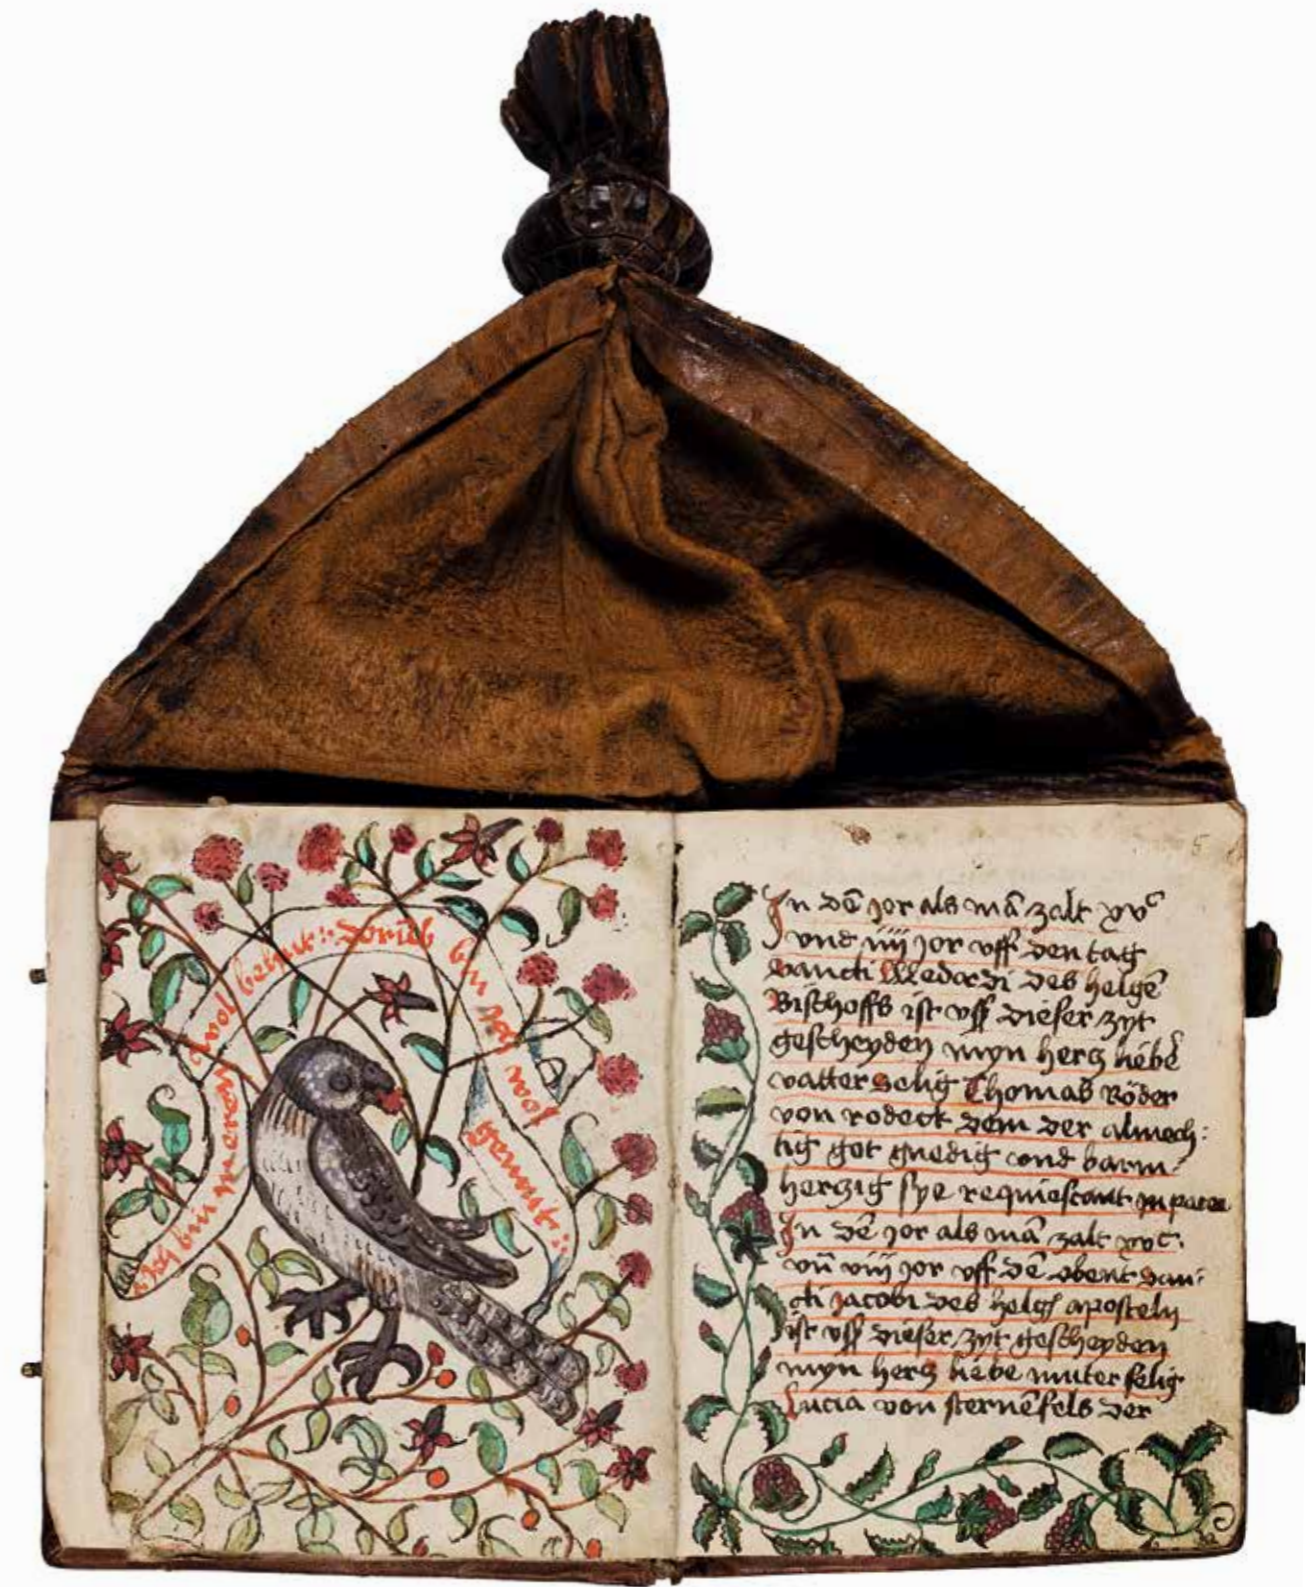 Ich bin meren wol bekant : bin ich wol genant :
5
In dē jor als mā zalt xvc
vnd iiij jor vff den tag
Sancti Medardi des helgē
Bischoffs ist vsß dieser zyt
gescheyden myn hertz liebē
vatter selig Thomas Röder
von rodeck dem der almech:
tig got gnedig vnd barm-
hertzig sye requiescant in pace
In dē jor als mā zalt xvc.
vn̄ viij jor vff dē obent San:
cti Jacobi des helgē aposteln
ist vsß dieser zyt gescheyden
myn hertz liebe muter selig
Lucia von sternēfels der